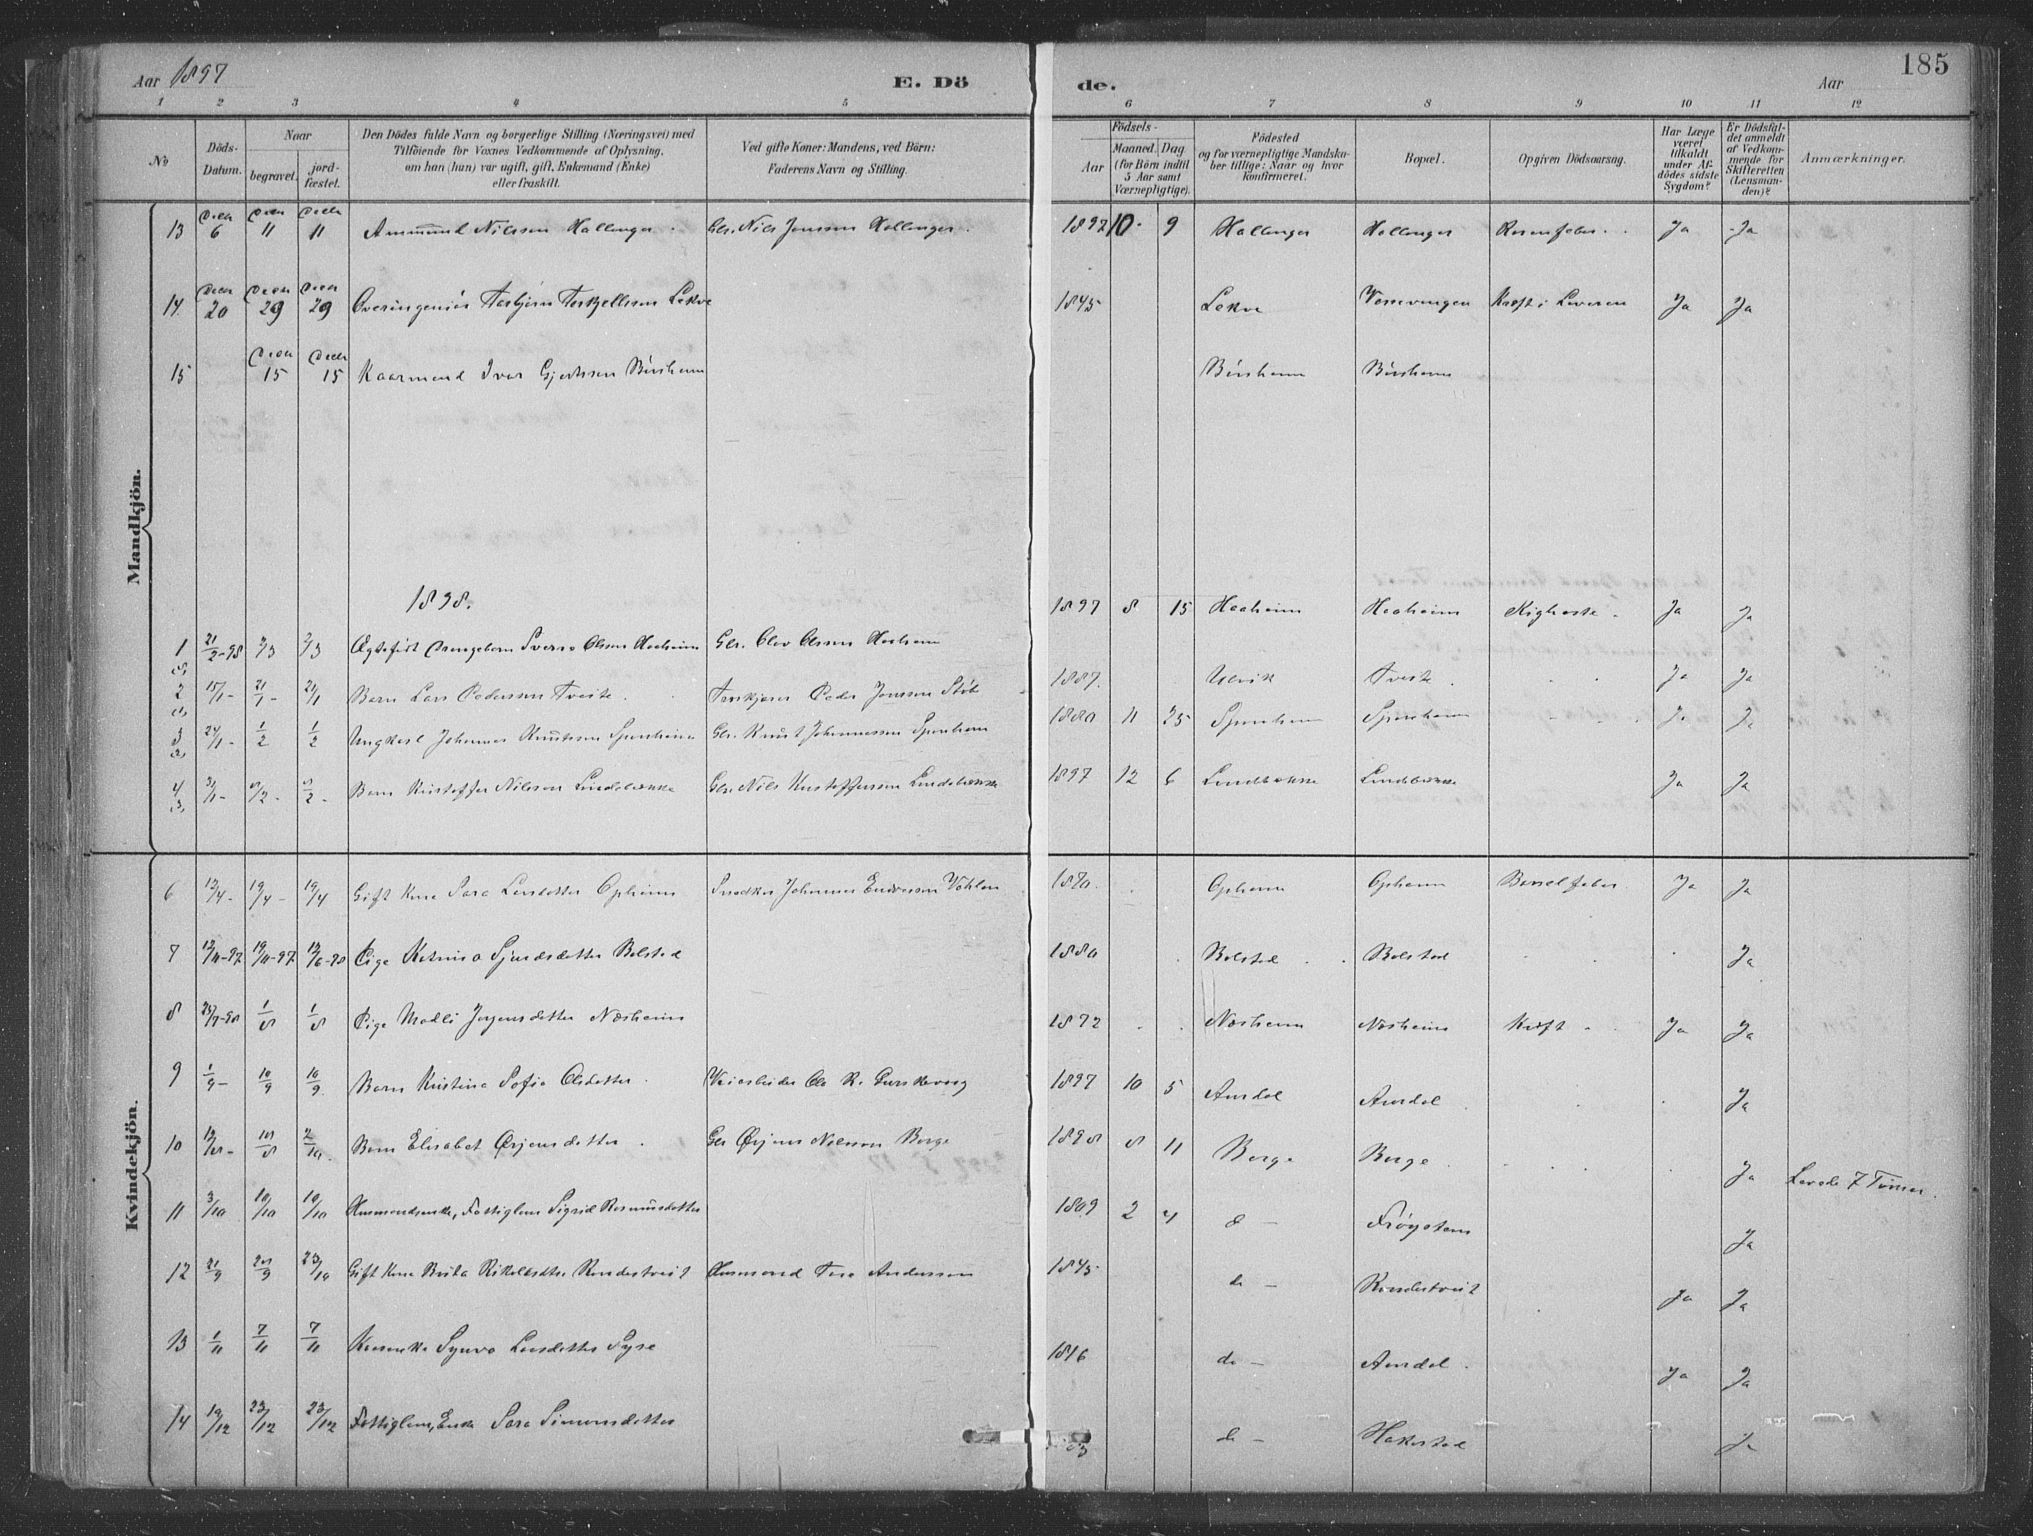 Aar 1897
E. Dö
de.
Aar
185
1 2 3 4 5 6 7 8 9 10 11 12
No
Döds-Datum.
Naar
begravet.
jord-fæstet.
Den Dödes fulde Navn og borgerlige Stilling (Næringsvei) med
Tilföiende for Voxnes Vedkommende af Oplysning,
om han (hun) var ugift, gift, Enkemand (Enke)
eller fraskilt.
Ved gifte Koner: Mandens, ved Börn:
Faderens Navn og Stilling.
Födsels-
Aar
Maaned. Dag.
(for Börn indtil
5 Aar samt
Værnepligtige).
Födested
og for værnepligtige Mandska-
ber tillige: Naar og hvor
konfirmeret.
Bopæl.
Opgiven Dödsaarsag.
Har Læge
været
tilkaldt
under Af-
dödes sidste
Sygdom?
Er Dödsfal-
det anmeldt
af Vedkom-
mende for
Skifteretten
(Lensman-
den)?
Anmærkninger.
Mandkjön.
13 Decbr 6 Decbr 11 Decbr 11 Ammund Nilssen Hallanger. Gbr. Nils Jonssen Hallanger. 1897 10 9 Hallanger Hallanger Rosenfeber Ja Ja
14 Decbr 20 Decbr 29 Decbr 29 Overingeniør Torbjørn Torkjellssen Lekve 1845 Lekve Vossevangen Kræft i Leveren Ja Ja
15 Decbr 15 Decbr 15 Kaarmand Ivar Gjertssen Bürsheim Bürsheim Bürsheim
1898.
1 21/2-98 Ægtefødt Drengebarn Sverre Olssen Haaheim Gbr. Olav Olssen Haaheim 1897 8 15 Haaheim Haaheim Kighoste. Ja Ja
2 15/1- 21/1- 21/1 Barn Lars Pederssen Tveite. Peder Jonssen 1887. Ulvik Tveite. Ja Ja
3 24/1- 1/2 1/2 Ungkarl Johannes Knutssen Sponheim Gbr. Knut Johannessen Sponheim 1880 11 25 Sponheim Sponheim Ja Ja
4 Barn Kristoffer Nilssen Lindebrække Gbr. Nils Kristofferssen Lindebrække 1897 12 6 Lindebrække Lindebrække Ja Ja
Kvindekjön.
6 12/4- 19/4- 19/4 Gift Kone Sara Larsdotter Opheim Snedker Johannes 1870. Opheim Opheim Barselfeber Ja Ja
7 12/11-97 19/11-97 12/6-98 Pige Katrina Sjursdotter Bolstad 1880 Bolstad Bolstad Ja
8 1/8 1/8 Pige Madli Jørgensdotter Næsheim 1872 Næsheim Næsheim Kræft Ja Ja
9 1/9- 10/9 10/9 Barn Kristina Sofie Olsdotter. Veiarbeider Ola R. 1897 10 5 Aurdal Aurdal Ja
10 Barn Elisabet Ørjansdotter. Gbr Ørjans Nilssen Borge 1898 8 11 Borge Borge. Ja Levede 7 Timer.
11 3/10 10/10 10/10 Husmandsenke, Fattiglem Sigrid Rasmusdotter 1809 2 4 d - Frøystein Ja
12 21/9 28/9 23/10 Gift Kone Brita Rikolfsdtr Rondestveit Husmand Tore Anderssen 1845 do - Rondestveit Ja Ja
13 1/11 7/11 7/11 Synva Larsdotter Syse 1816 do - Aurdal. Ja Ja
14 19/12 23/12 23/12 Fattiglem, Enke Sara Simonsdotter do - Hakestad Ja